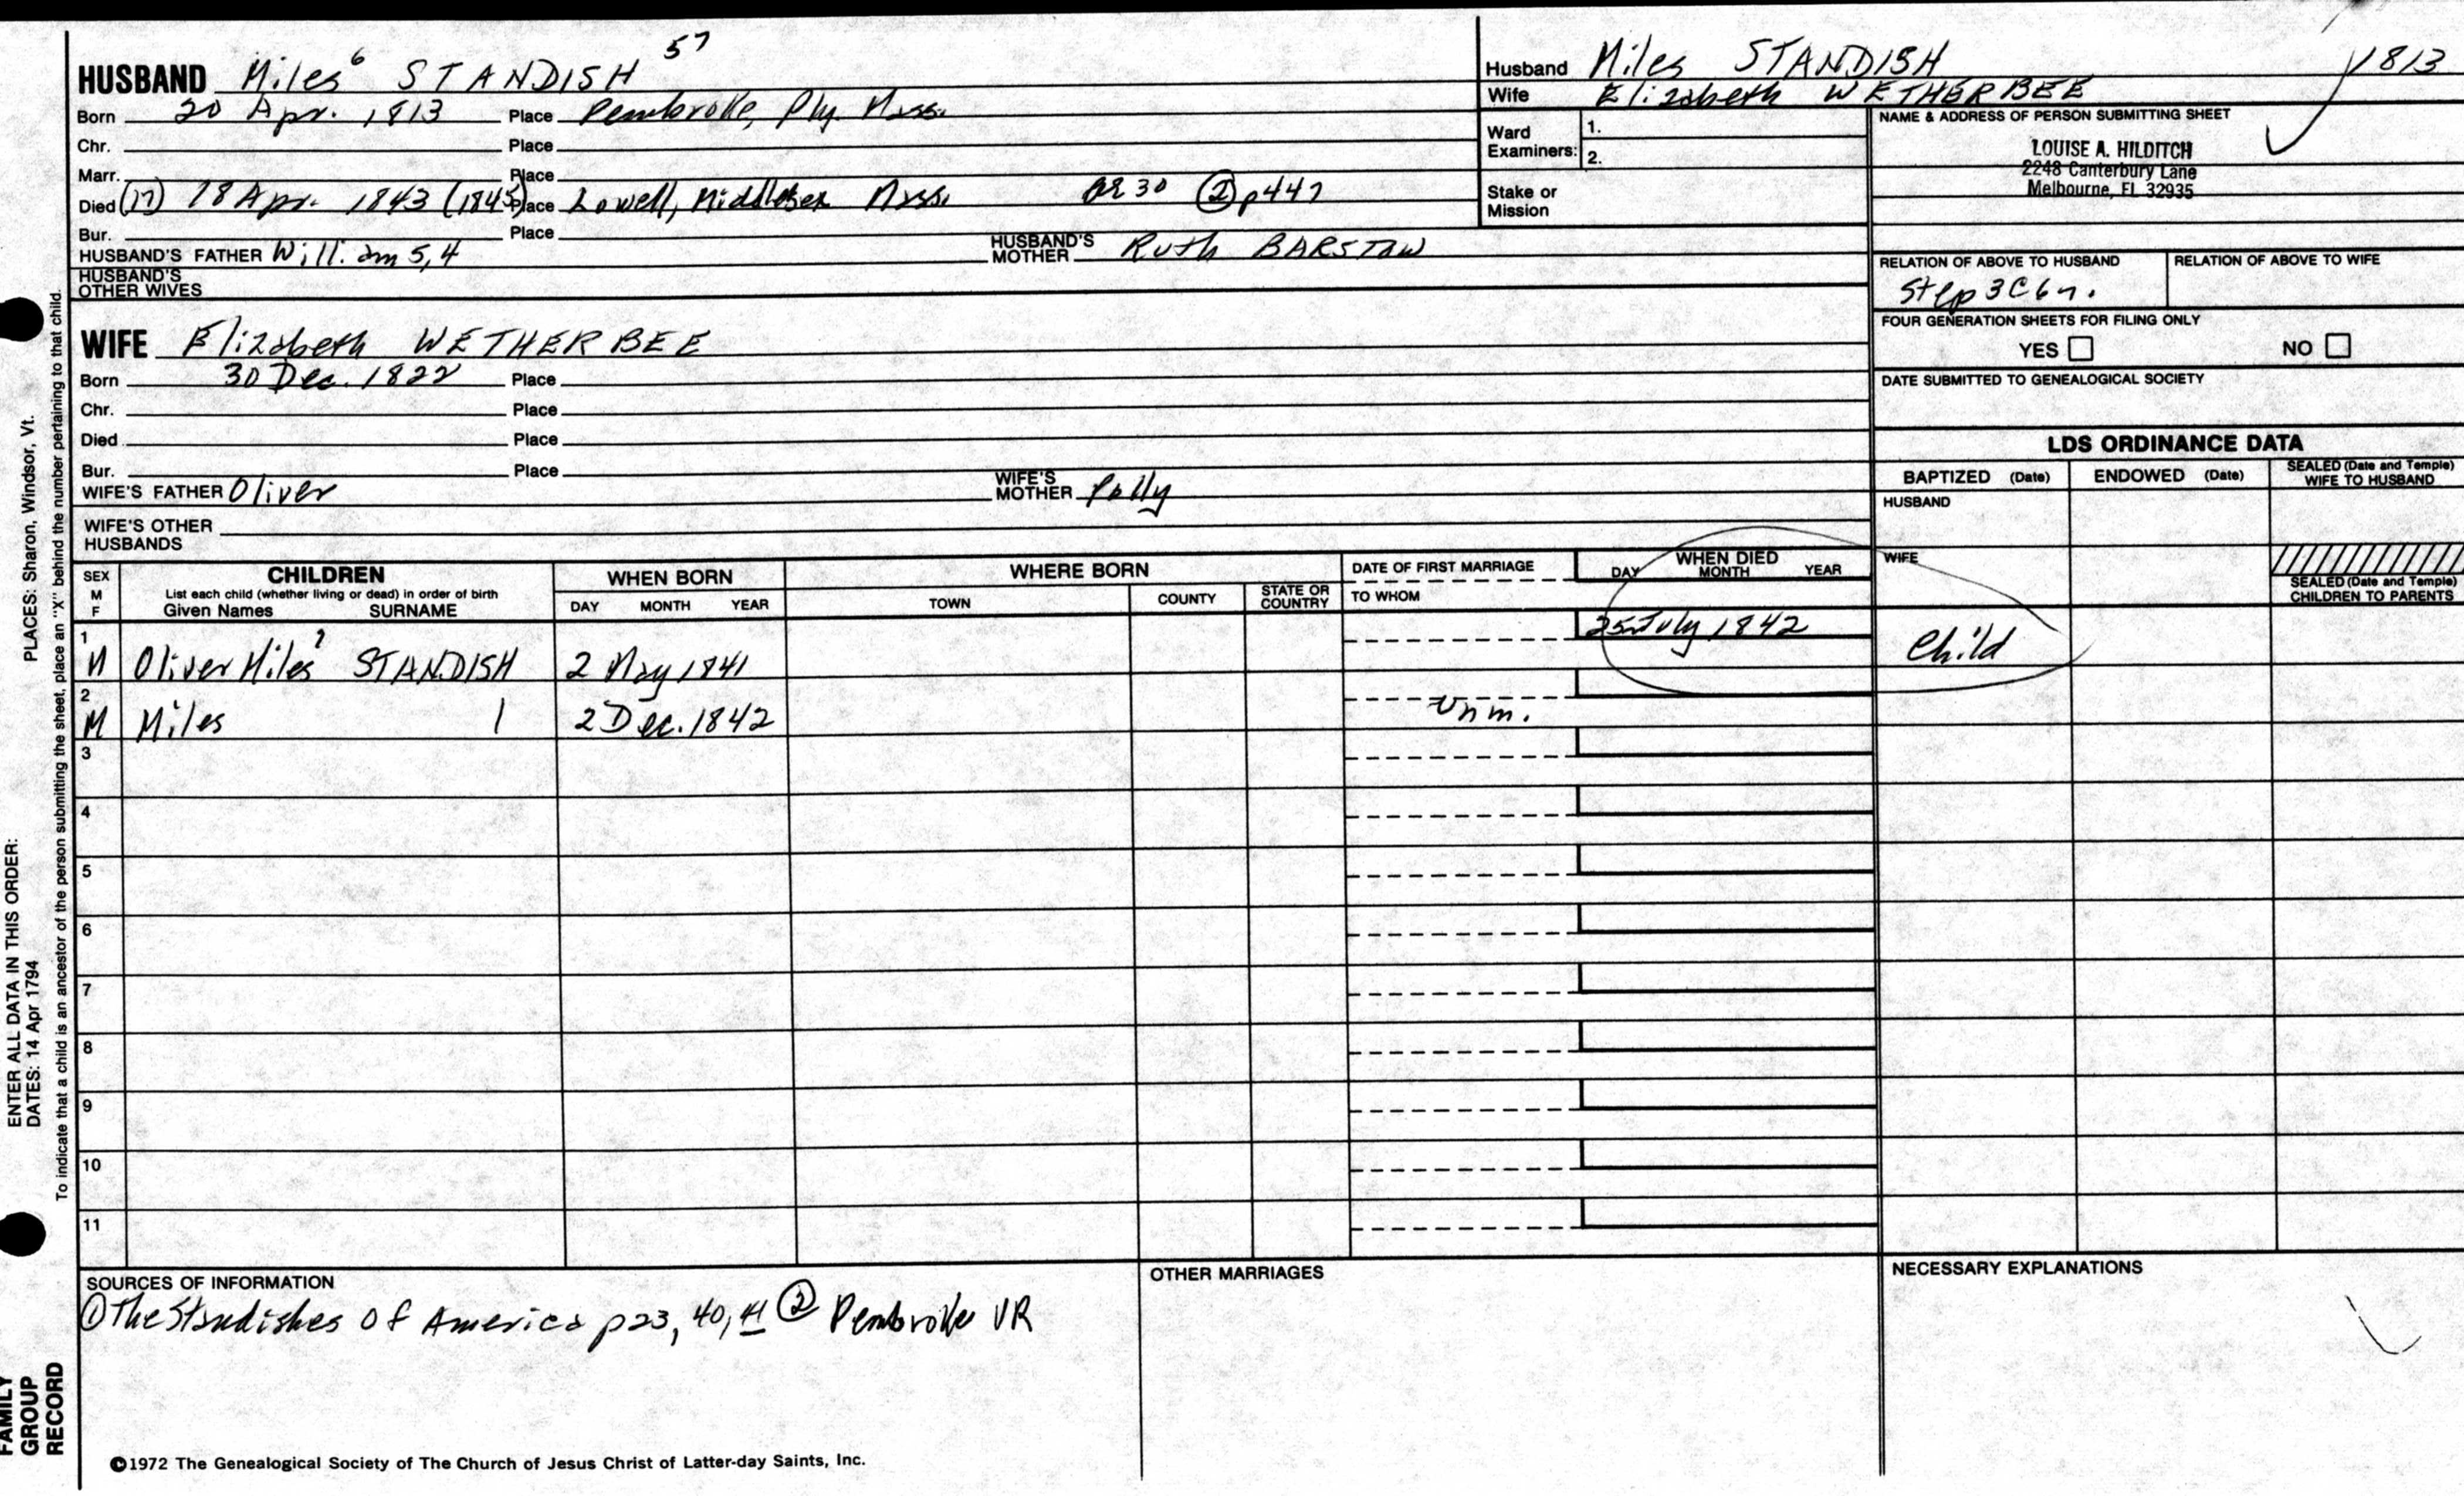 HUSBAND Miles 6 STANDISH 57
Born 20 Apr. 1813 Place Pembroke, Ply. Mass.
Chr. Place
Marr. Place
Died (17) 18 Apr. 1843 (1845) Place Lowell, Middlesex Mass. ae 30 ② p447
Bur. Place
HUSBAND'S FATHER William 5,4 HUSBAND'S MOTHER Ruth BARSTOW
HUSBAND'S OTHER WIVES
Husband Miles STANDISH 1813
Wife Elizabeth WETHERBEE
Ward Examiners: 1.
2.
Stake or Mission
NAME & ADDRESS OF PERSON SUBMITTING SHEET
LOUISE A. HILDITCH
2248 Canterbury Lane
Melbourne, FL 32935
RELATION OF ABOVE TO HUSBAND RELATION OF ABOVE TO WIFE
Step 3C6r.
FOUR GENERATION SHEETS FOR FILING ONLY
YES NO
DATE SUBMITTED TO GENEALOGICAL SOCIETY
WIFE Elizabeth WETHERBEE
Born 30 Dec. 1822 Place
Chr. Place
Died Place
Bur. Place
WIFE'S FATHER Oliver WIFE'S MOTHER Polly
WIFE'S OTHER HUSBANDS
LDS ORDINANCE DATA
BAPTIZED (Date) ENDOWED (Date) SEALED (Date and Temple) WIFE TO HUSBAND
HUSBAND
WIFE
SEALED (Date and Temple) CHILDREN TO PARENTS
SEX M F
CHILDREN
List each child (whether living or dead) in order of birth
Given Names SURNAME
WHEN BORN
DAY MONTH YEAR
WHERE BORN
TOWN COUNTY STATE OR COUNTRY
DATE OF FIRST MARRIAGE
TO WHOM
WHEN DIED
DAY MONTH YEAR
1 M Oliver Miles 7 STANDISH 2 May 1841 25 July 1842 Child
2 M Miles | 2 Dec. 1842 Unm.
3
4
5
6
7
8
9
10
11
SOURCES OF INFORMATION
① The Standishes of America p23, 40, 41 ② Pembroke VR
OTHER MARRIAGES
NECESSARY EXPLANATIONS
©1972 The Genealogical Society of The Church of Jesus Christ of Latter-day Saints, Inc.
ENTER ALL DATA IN THIS ORDER:
DATES: 14 Apr 1794 PLACES: Sharon, Windsor, Vt.
To indicate that a child is an ancestor of the person submitting the sheet, place an "X" behind the number pertaining to that child.
FAMILY
GROUP
RECORD